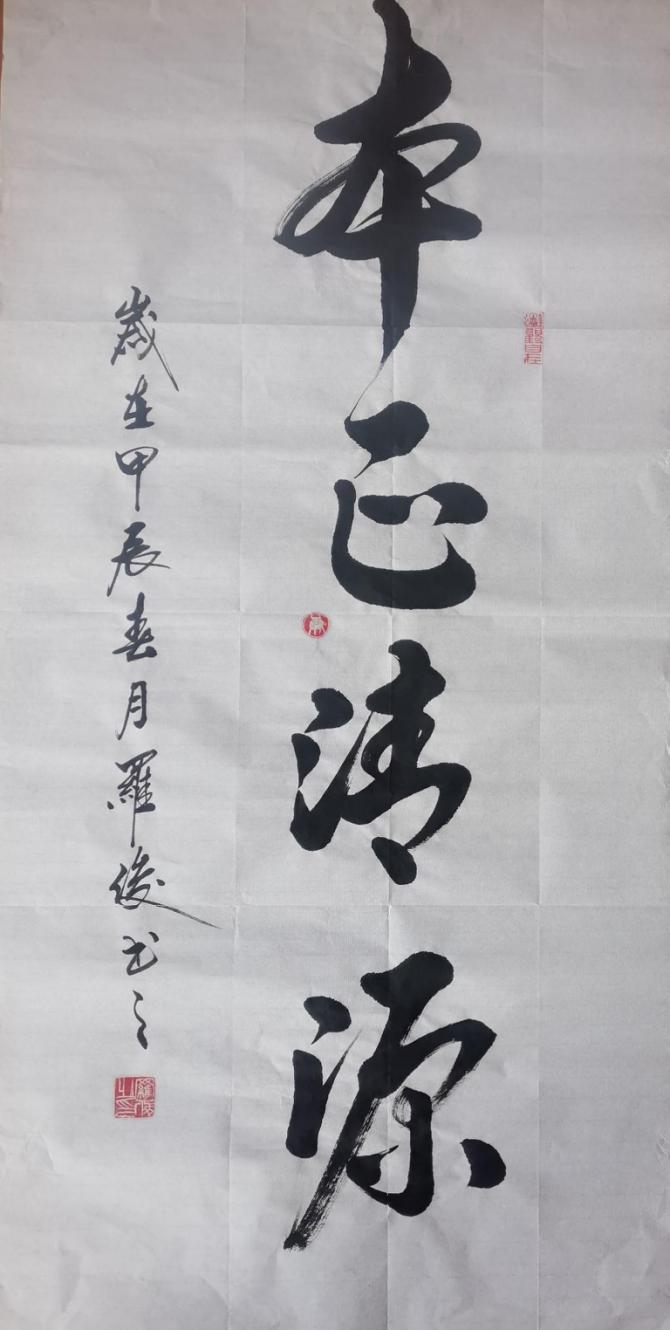 本正清源
歲在甲辰春月羅俊书之